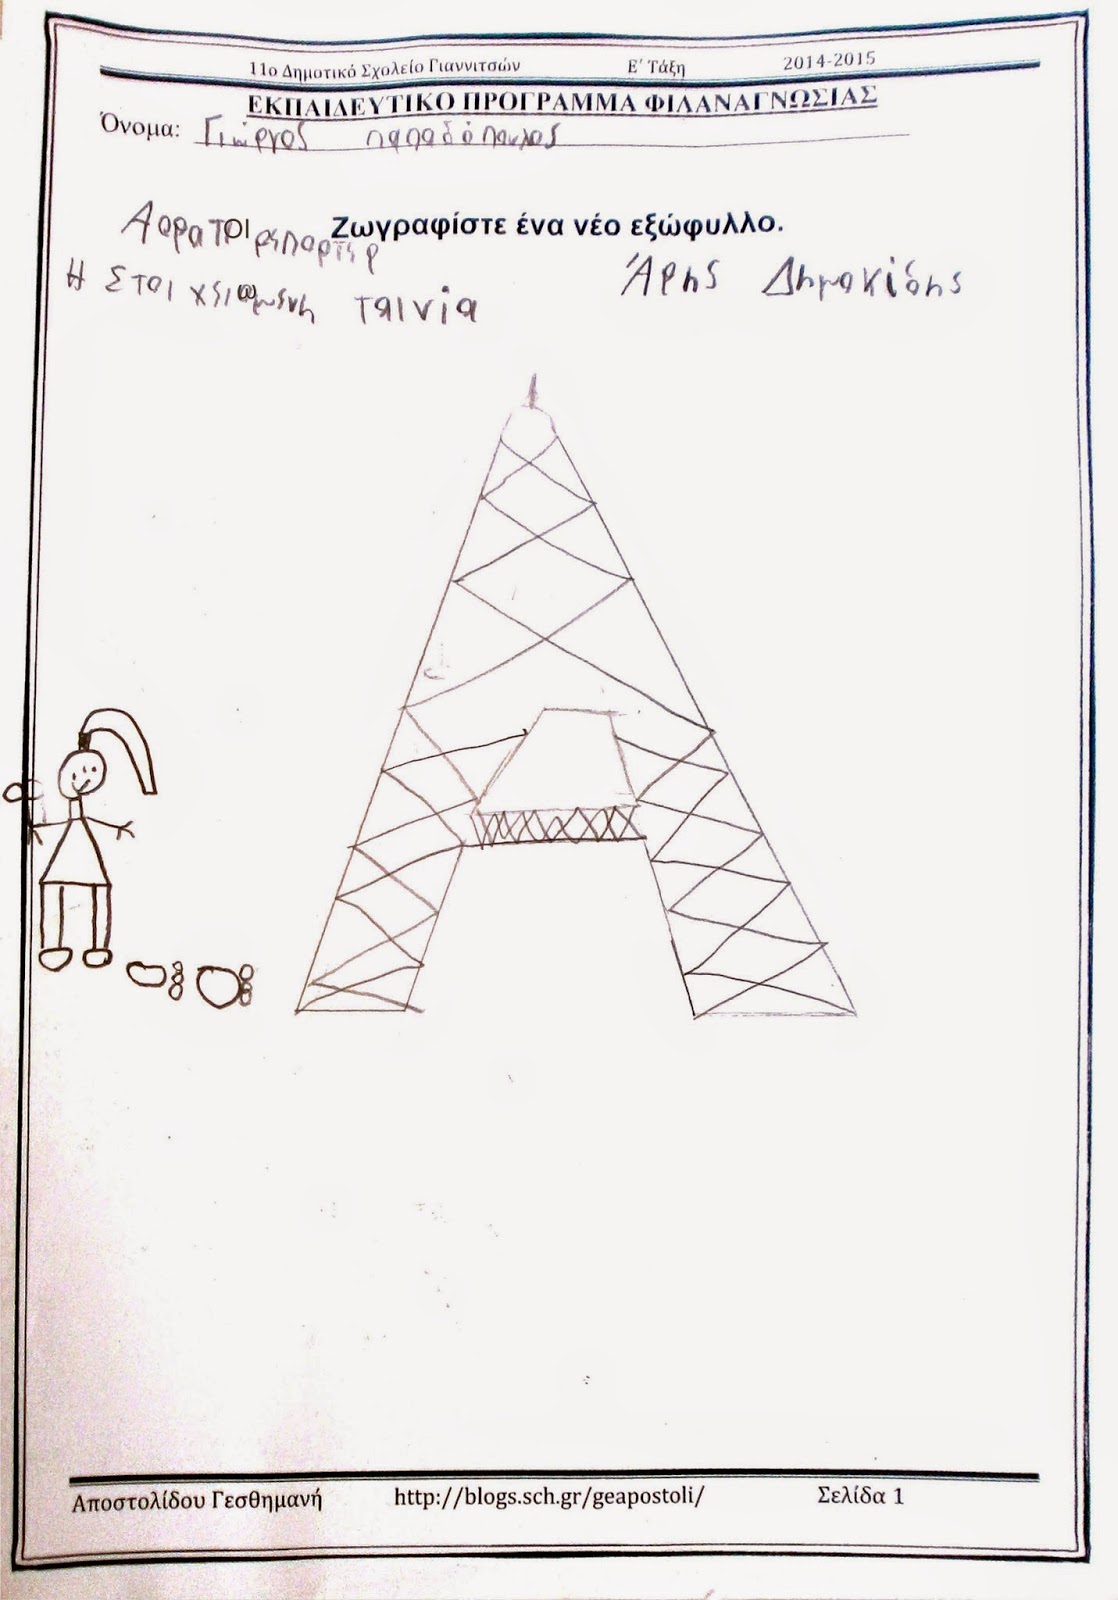 11ο Δημοτικό Σχολείο Γιαννιτσών Ε΄ Τάξη 2014-2015
ΕΚΠΑΙΔΕΥΤΙΚΟ ΠΡΟΓΡΑΜΜΑ ΦΙΛΑΝΑΓΝΩΣΙΑΣ
Όνομα: Γιώργος παπαδόπουλος
Ζωγραφίστε ένα νέο εξώφυλλο.
Αορατοι ρεπορτερ
Η Στοιχειωμενη ταινία
Άρης Δημοκίδης
Αποστολίδου Γεσθημανή http://blogs.sch.gr/geapostoli/ Σελίδα 1